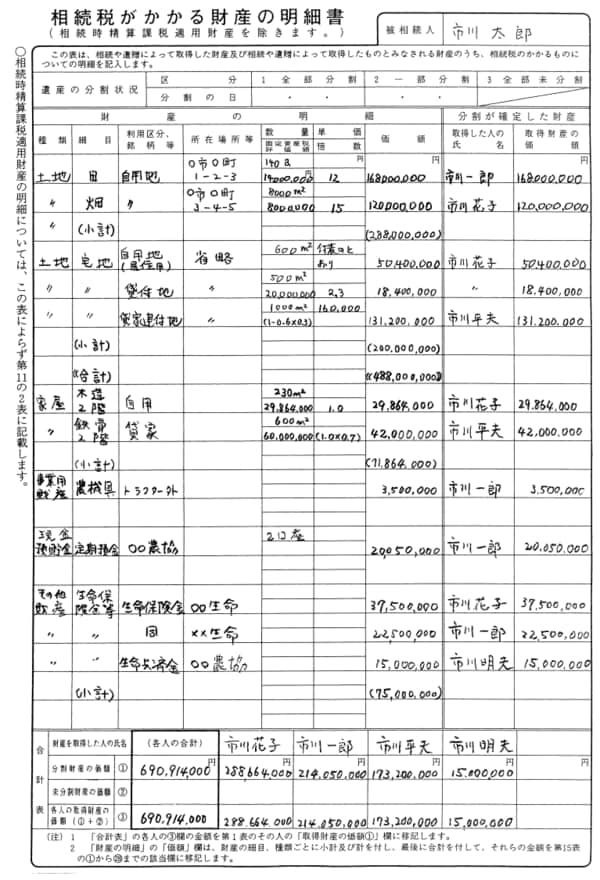 相続税がかかる財産の明細書
（相続時精算課税適用財産を除きます。）
被相続人 市川太郎
○相続時精算課税適用財産の明細については、この表によらず第11の2表に記載します。
この表は、相続や遺贈によって取得した財産及び相続や遺贈によって取得したものとみなされる財産のうち、相続税のかかるものに
ついての明細を記入します。
遺産の分割状況 区分 1 全部分割 2 一部分割 3 全部未分割
分割の日 ・ ・ ・ ・
財産の明細 分割が確定した財産
種類 細目 利用区分、銘柄等 所在場所等 数量 固定資産税評価額 単価 倍数 価額 取得した人の氏名 取得財産の価額
土地 田 自用地 ○市○町 1-2-3 140a 14000,000円 12 168,000,000円 市川一郎 168,000,000円
〃 畑 〃 ○市○町 3-4-5 8000m² 8000,000 15 120,000,000 市川花子 120,000,000
〃 (小計) (288,000,000)
土地 宅地 自用地(居住用) 省略 600m² 付表のとおり 50,400,000 市川花子 50,400,000
〃 〃 貸付地 〃 500m² 20,000,000 2,3 18,400,000 〃 18,400,000
〃 〃 貸家建付地 〃 1000m² (1-0.6×0.3) 160,000 131,200,000 市川平夫 131,200,000
(小計) (200,000,000)
《合計》 《488,000,000》
家屋 木造2階 自用 230m² 29,864,000 1.0 29,864,000 市川花子 29,864,000
〃 鉄骨2階 貸家 600m² 60,000,000 (1.0×0.7) 42,000,000 市川平夫 42,000,000
(小計) (71,864,000)
事業用財産 農機具 トラクター外 3,500,000 市川一郎 3,500,000
現金預貯金 定期預金 ○○農協 2口座 20,050,000 市川一郎 20,050,000
その他財産 生命保険金等 生命保険金 ○○生命 37,500,000 市川花子 37,500,000
〃 〃 同 ××生命 22,500,000 市川一郎 22,500,000
〃 〃 生命共済金 ○○農協 15,000,000 市川明夫 15,000,000
(小計) (75,000,000)
合計表
財産を取得した人の氏名 (各人の合計) 市川花子 市川一郎 市川平夫 市川明夫
分割財産の価額 ① 690,914,000円 288,664,000円 214,050,000円 173,200,000円 15,000,000円 円
未分割財産の価額 ②
各人の取得財産の価額（①＋②） ③ 690,914,000 288,664,000 214,050,000 173,200,000 15,000,000
（注） 1 「合計表」の各人の③欄の金額を第1表のその人の「取得財産の価額①」欄に移記します。
2 「財産の明細」の「価額」欄は、財産の細目、種類ごとに小計及び計を付し、最後に合計を付して、それらの金額を第15表
の①から㉘までの該当欄に移記します。